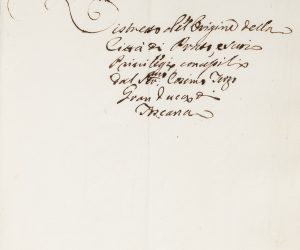 Ristretto dell'Origine della
Città di Prato, e suoi
Privilegi concessili
dal Ser.mo Cosimo Terzo
Gran Duca di
Toscana